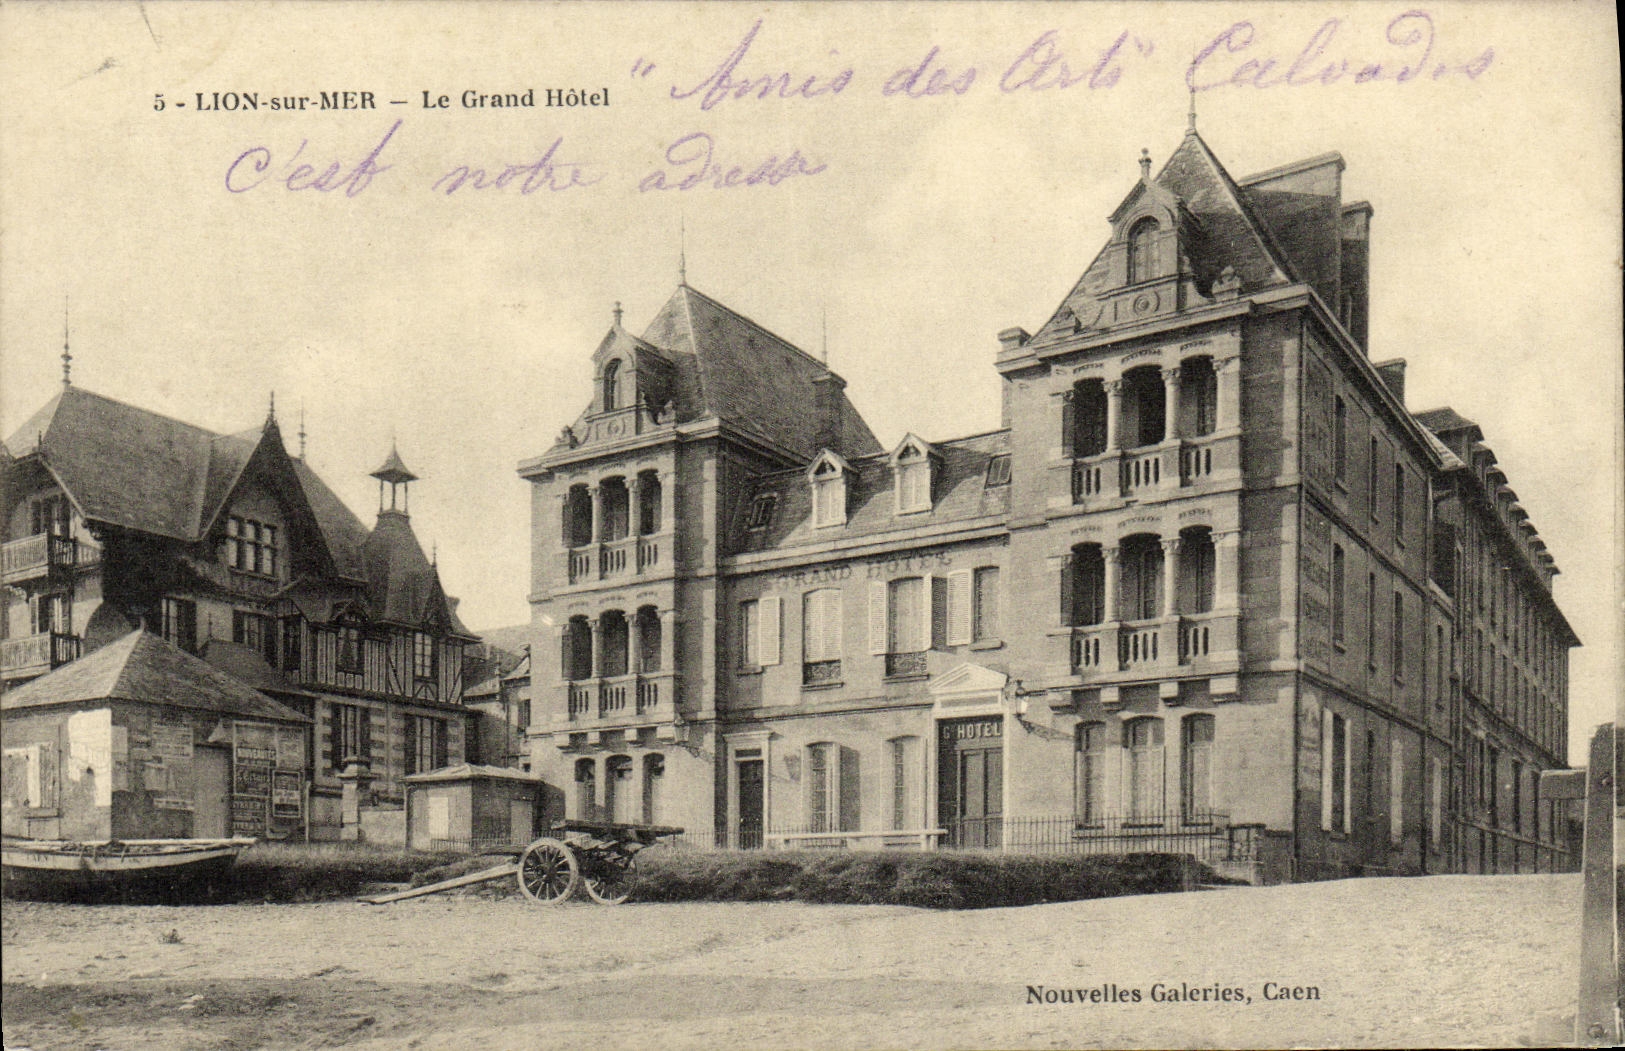 5 - LION-sur-MER — Le Grand Hôtel
"Amis des Arts" Calvados
c'est notre adresse
GRAND HOTEL
Gd HOTEL
CAEN
Nouvelles Galeries, Caen